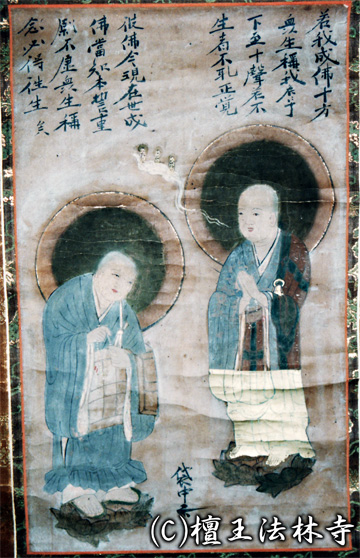 若我成佛十方
衆生稱我名号
下至十聲若不
生者不取正覺
彼佛今現在世成
佛當知本誓重
願不虚衆生稱
念必得往生矣
袋中
(C)檀王法林寺